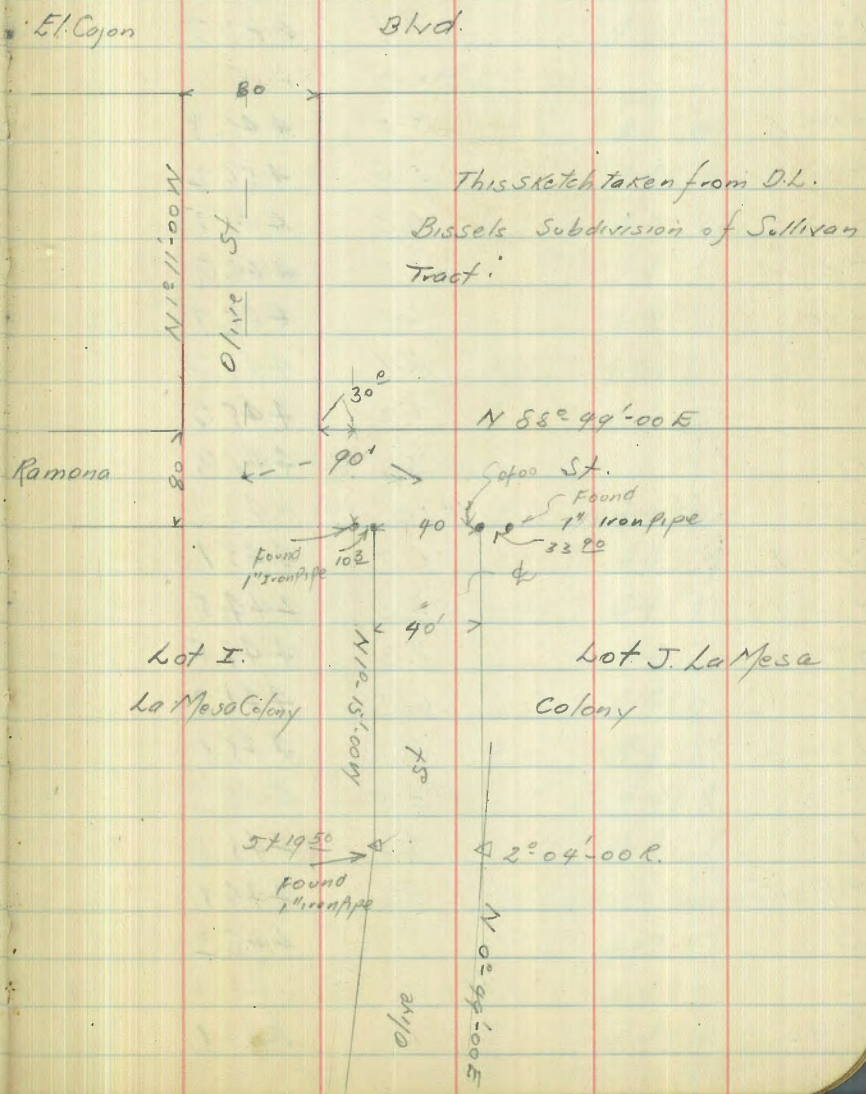 El. Cajon Blvd.
80
This sketch taken from D.L.
Bissels Subdivision of Sullivan
Tract.
N1°11'-00W
Olive St
30°
N 88° 49'-00 E
Ramona St.
80
90'
0+00
Found
1" Iron Pipe
40
33 90
Found
1" Iron Pipe
10 3
℄
40'
Lot I.
La Mesa Colony
Lot J. La Mesa
Colony
N1°-15'-00W
St
5+19 50
Found
1" iron pipe
2° 04'-00 R.
N 0° 49'-00E
Olive